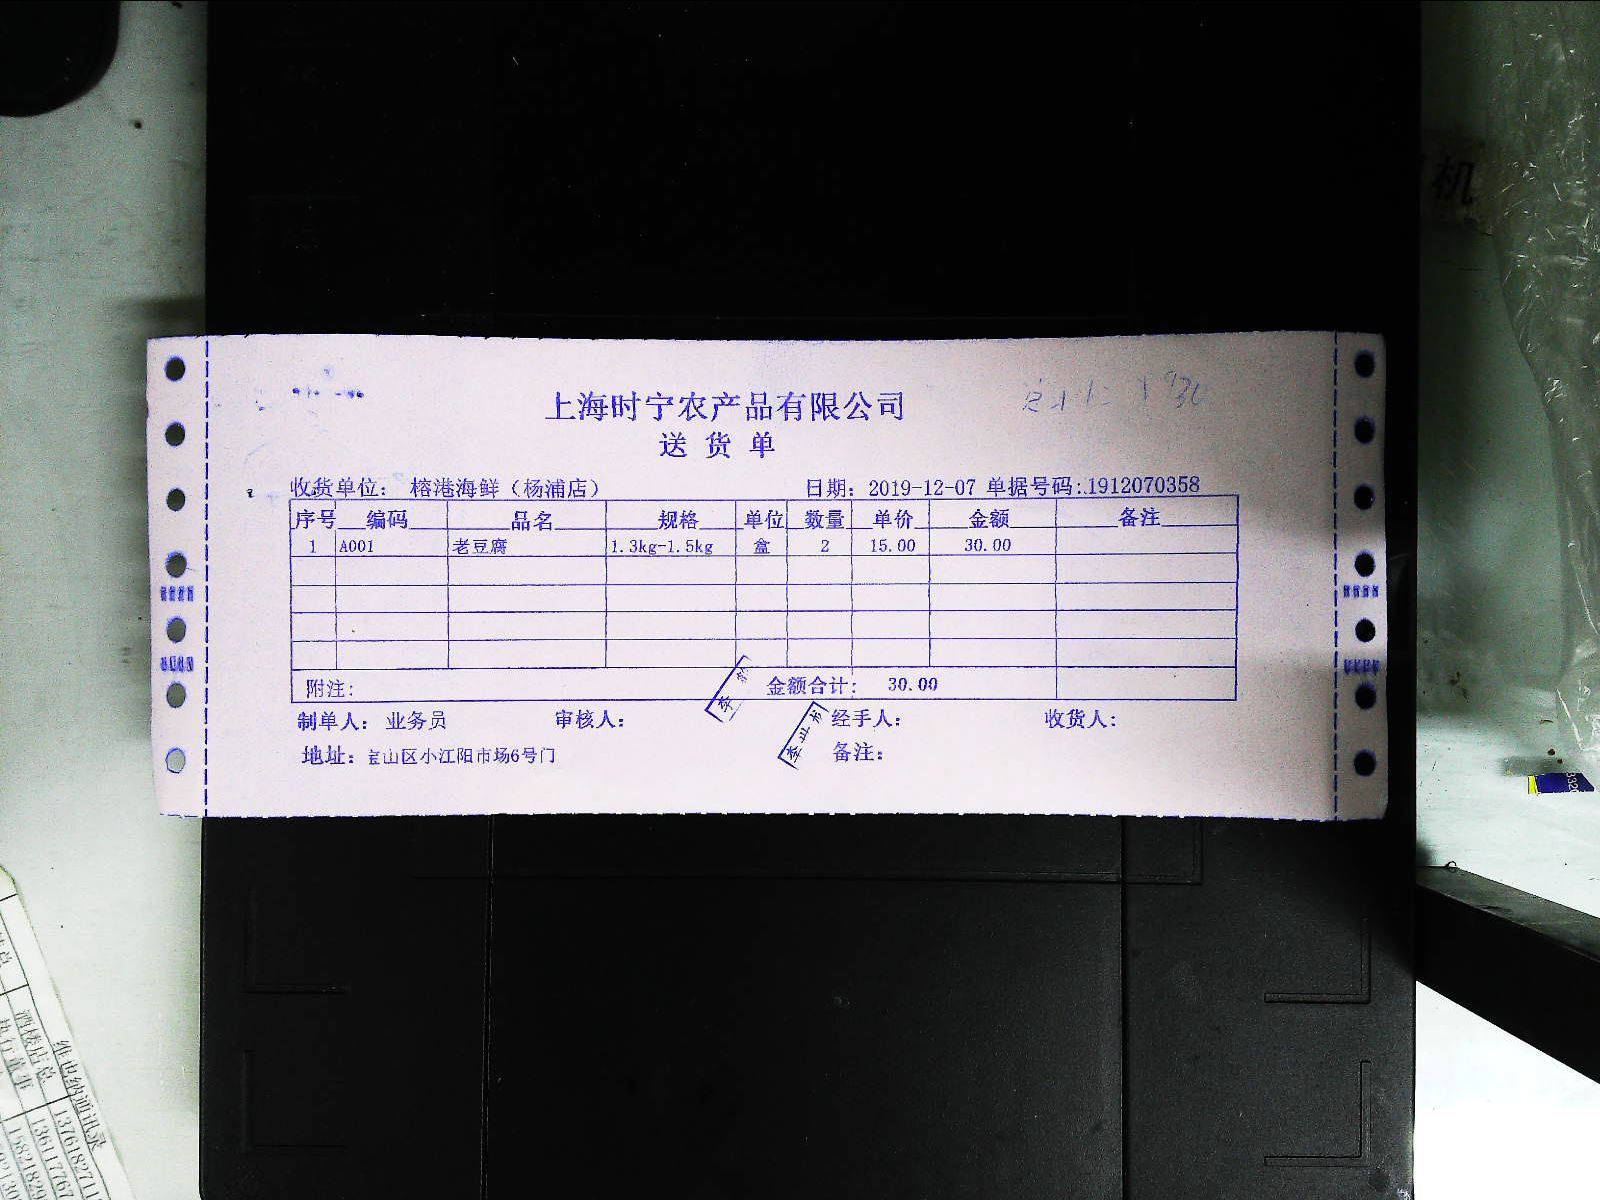 上海时宁农产品有限公司
送货单
收货单位： 榕港海鲜（杨浦店） 日期：2019-12-07 单据号码:1912070358
序号 编码 品名 规格 单位 数量 单价 金额 备注
1 A001 老豆腐 1.3kg-1.5kg 盒 2 15.00 30.00
附注： 金额合计： 30.00
制单人： 业务员 审核人： 经手人： 收货人：
地址：宝山区小江阳市场6号门 备注：
机
维也纳通讯录
酒楼店总